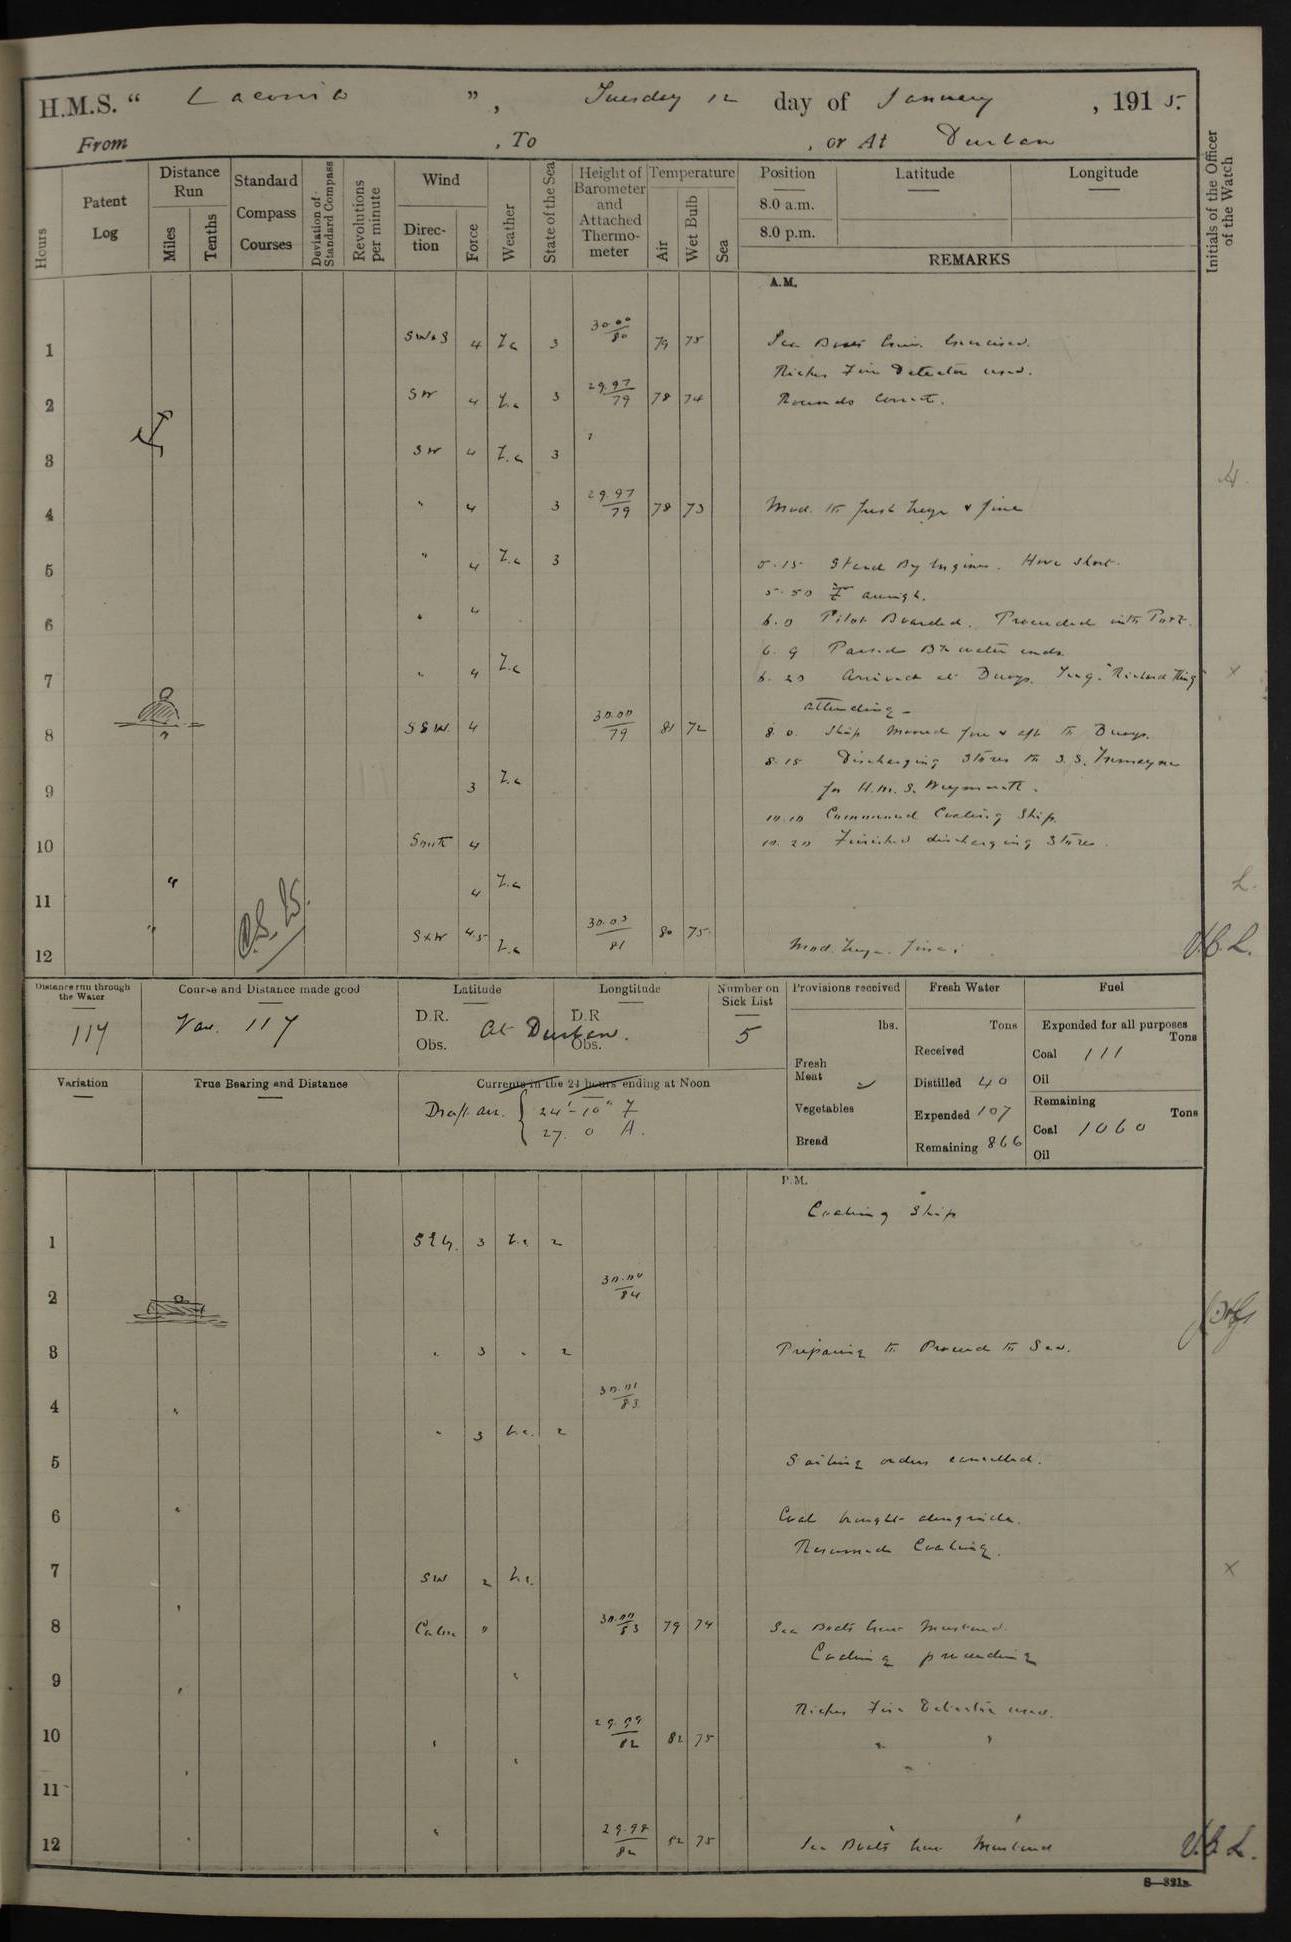 H.M.S. “ Laconia ”, Tuesday 12 day of January, 1915.
From , To , or At Durban
Hours
Patent Log
Distance Run
Miles
Tenths
Standard Compass Courses
Deviation of Standard Compass
Revolutions per minute
Wind
Direction
Force
Weather
State of the Sea
Height of Barometer and Attached Thermometer
Temperature
Air
Wet Bulb
Sea
Position
8.0 a.m.
8.0 p.m.
Latitude
Longitude
REMARKS
Initials of the Officer of the Watch
A.M.
1 4 3 30.00 80 79 75 Sea Boats Crew Exercised.
Riches Fire Detector used.
2 SW 4 3 29.97 79 78 74 Rounds Correct.
3 SW 4 3
4 " 4 3 29.97 79 78 73 Mod. to fresh breeze & fine
5 " 4 3 5.15 Stand By Engines. Hove short.
5.50 aweigh.
6 " 4 6.0 Pilot Boarded. Proceeded into Port.
6.9 Passed Bk water ends
7 " 4 6.20 Arrived at Buoys. Tug "Richard King"
attending
8 SSW. 4 30.00 79 81 72 8.0 Ship Moored fore & aft to Buoys.
8.15 Discharging Stores to S.S. Tremayne
9 3 for H.M.S. Weymouth.
10.10 Commenced Coaling Ship.
10 South 4 10.20 Finished discharging Stores.
11 " 4
12 SxW 4.5 30.03 81 80 75 Mod. breeze. fine.
Distance run through the Water
117
Course and Distance made good
Var. 117
Latitude
D.R.
Obs.
Longtitude
D.R
Obs.
At Durban.
Number on Sick List
5
Provisions received
lbs.
Fresh Meat
Vegetables
Bread
Fresh Water
Tons
Received
Distilled 40
Expended 107
Remaining 866
Fuel
Expended for all purposes
Tons
Coal 111
Oil
Remaining
Tons
Coal 1060
Oil
Variation
True Bearing and Distance
Currents in the 24 hours ending at Noon
Draft arr. 24'-10" F
27. 0 A.
P.M.
Coaling Ship
1 3 2
2 30.00 84
3 " 3 " 2 Preparing to Proceed to Sea.
4 30.01 83
" 3 2
5 Sailing orders cancelled.
6 Coal brought alongside.
Resumed Coaling.
7 SW 2
8 Calm 30.00 83 79 74 Sea Boats crew Mustered.
Coaling proceeding
9
Riches Fire Detector used.
10 29.99 82 82 75 " "
11
12 " 29.98 82 82 75 Sea Boats crew Mustered
S—321a.